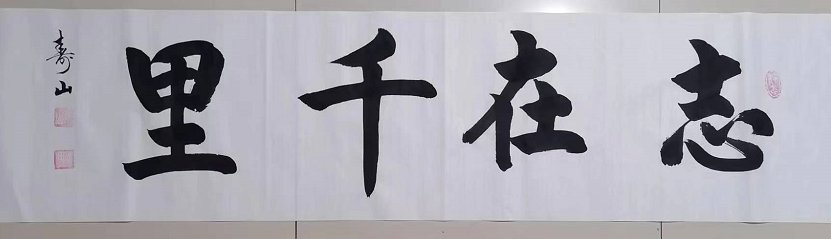 志在千里
寿山